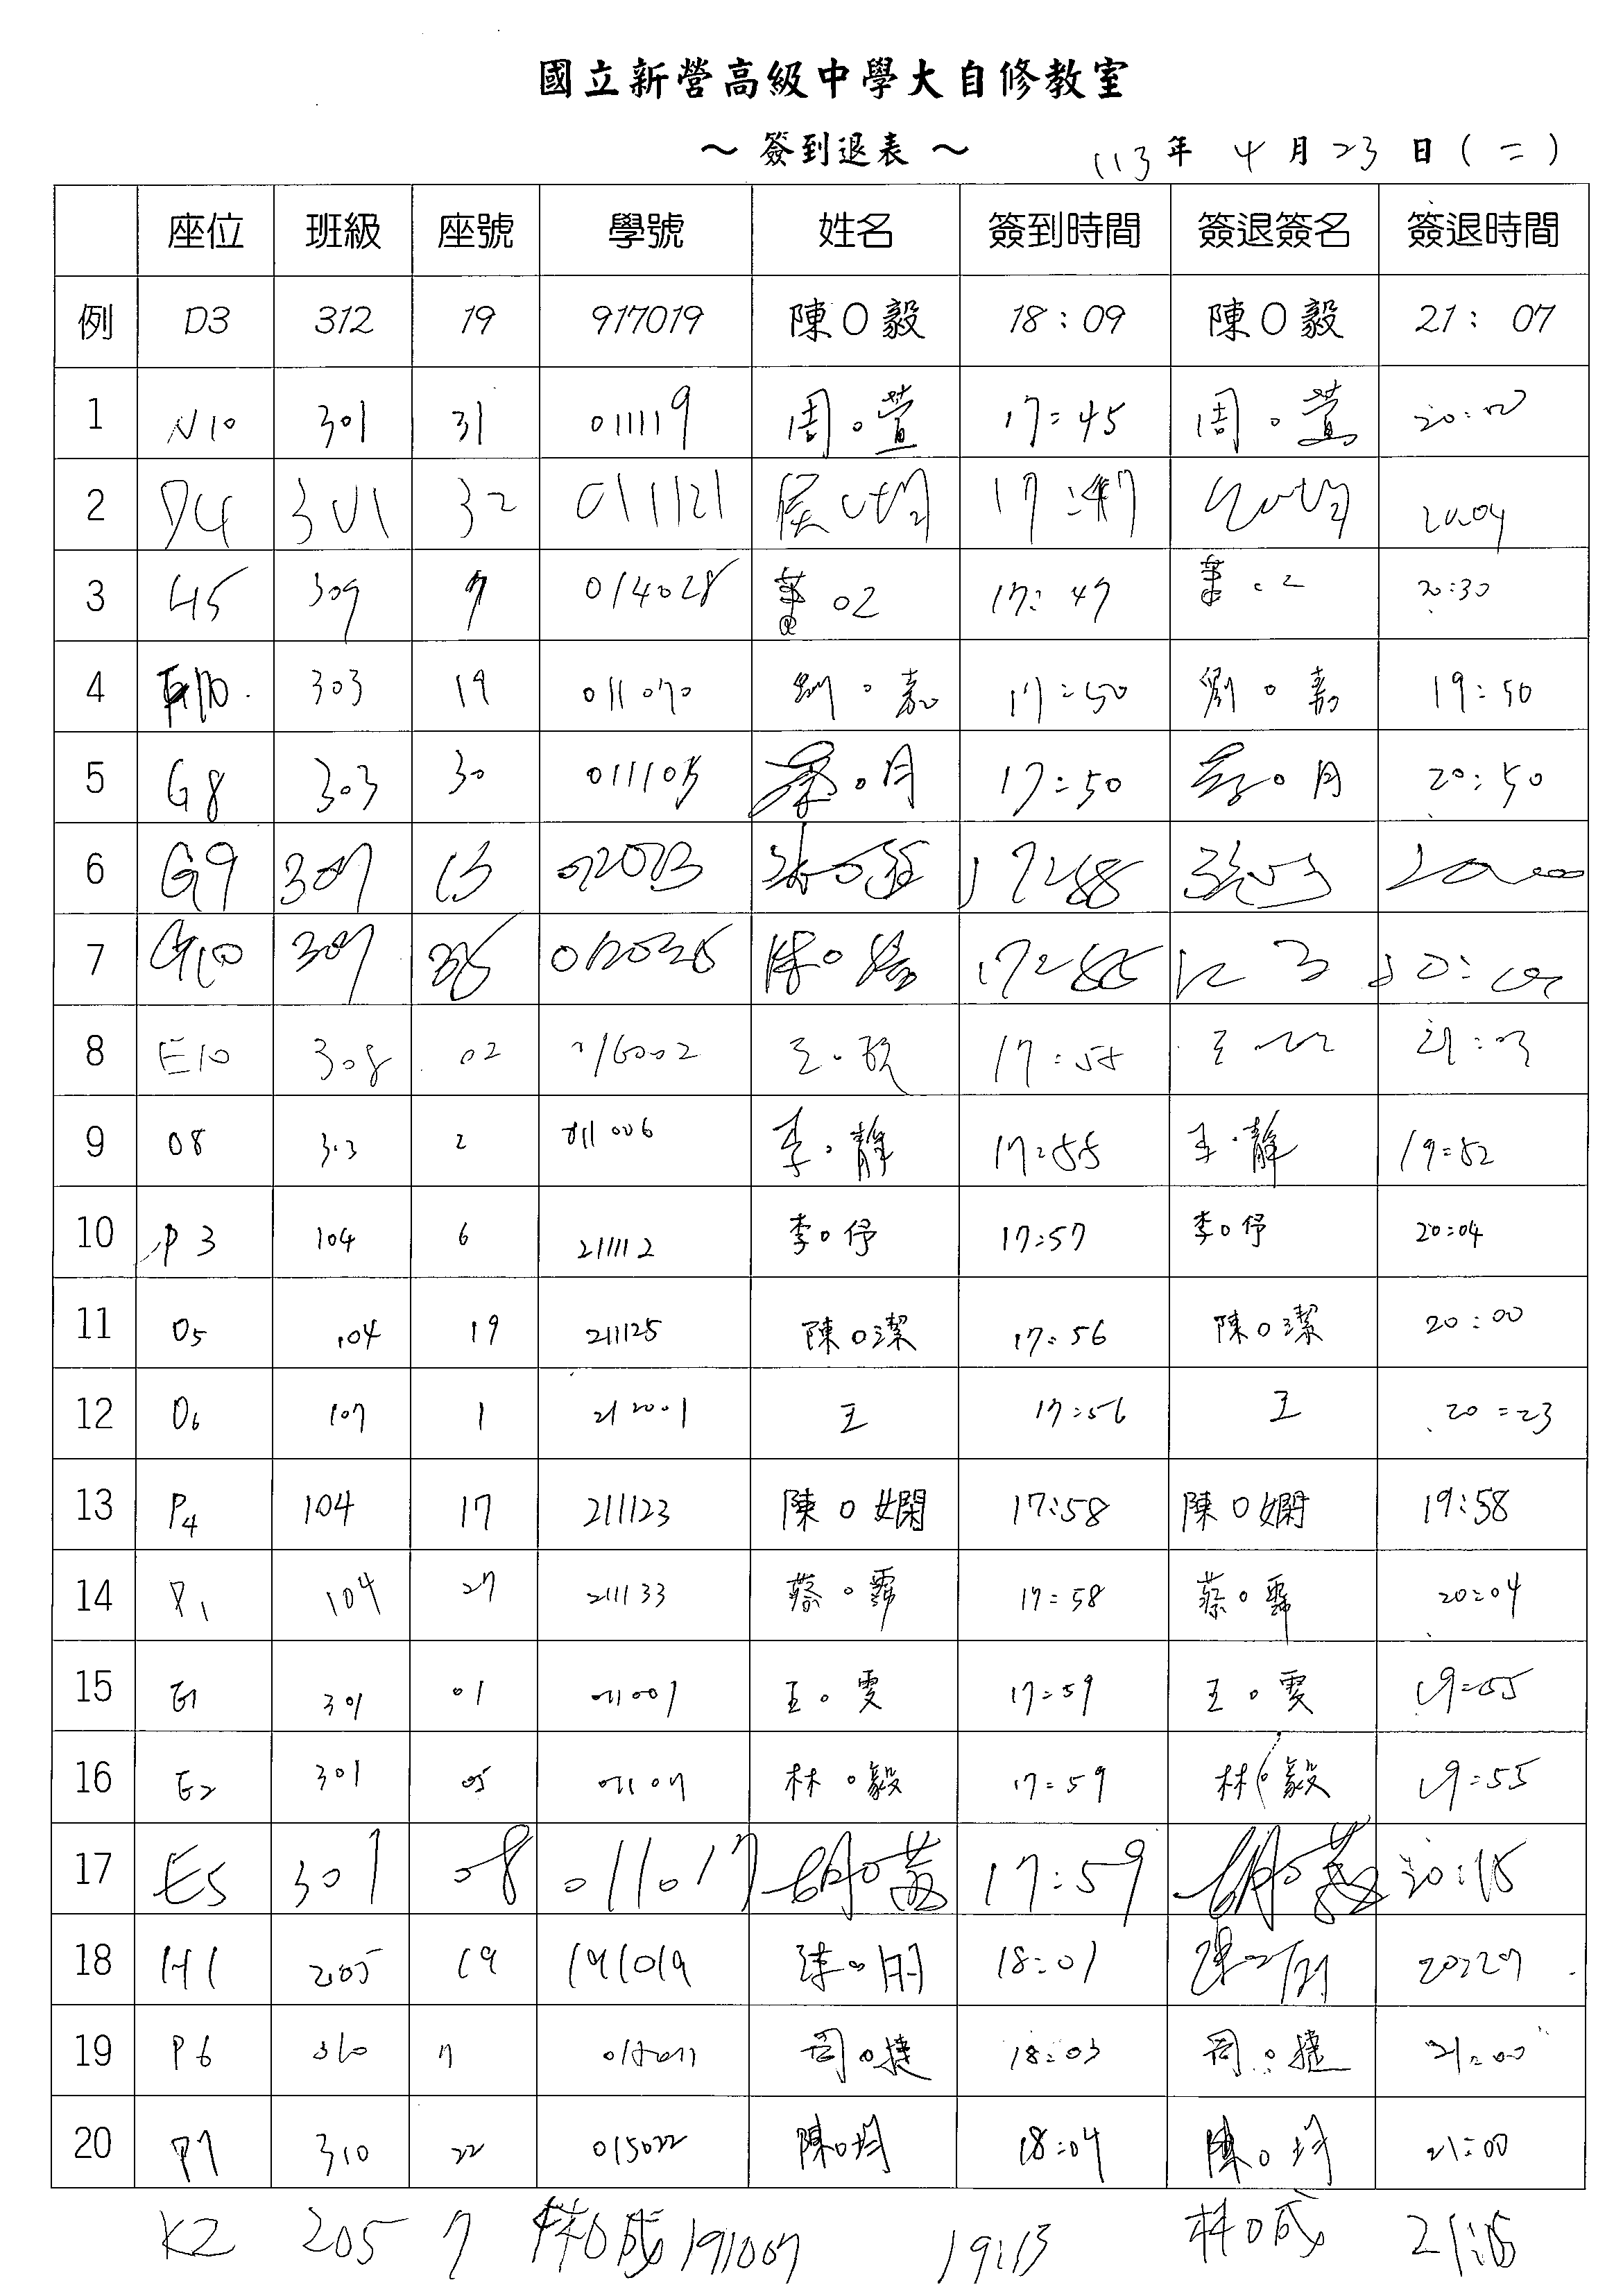 國立新營高級中學大自修教室
～ 簽到退表 ～ 113年 4月23日(二)
座位 班級 座號 學號 姓名 簽到時間 簽退簽名 簽退時間
例 D3 312 19 917019 陳O毅 18:09 陳O毅 21:07
1 N10 301 31 011119 周。萱 17:45 周。萱 20:00
2 D4 301 32 011121 20:04
3 H5 309 7 014028 17:47 20:30
4 303 19 011070 劉。嘉 17:50 劉。嘉 19:50
5 G8 303 30 011105 蔡。月 17:50 蔡。月 20:50
6 G9 307 13
7 G10 307
8 E10 308 02 016002 17:58
9 O8 303 2 011006 李。靜 17:55 李。靜 19:52
10 P3 104 6 211112 李O伃 17:57 李O伃 20:04
11 O5 104 19 211125 陳O潔 17:56 陳O潔 20:00
12 O6 107 1 212001 王 17:56 王 20:23
13 P4 104 17 211123 陳O嫻 17:58 陳O嫻 19:58
14 P1 104 27 211133 蔡。霈 17:58 蔡。霈 20:04
15 E1 301 01 011001 王。雯 17:59 王。雯 19:55
16 E2 301 05 林。毅 17:59 林 毅 19:55
17 E5 301 08 011017 17:59 20:18
18 H1 205 19 191019 18:01 20:27
19 P6 310 7 周。捷 18:03 周。捷 21:00
20 P7 310 22 015022 陳O均 18:04 陳O均 21:00
K2 205 7 林O成 191007 19:13 林O成